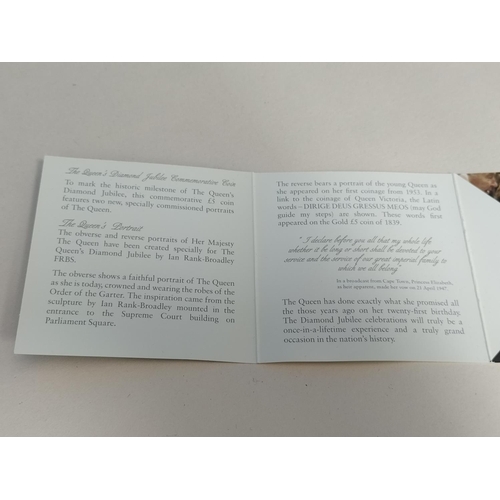 The Queen's Diamond Jubilee Commemorative Coin
To mark the historic milestone of The Queen's
Diamond Jubilee, this commemorative £5 coin
features two new, specially commissioned portraits
of The Queen.
The Queen's Portrait
The obverse and reverse portraits of Her Majesty
The Queen have been created specially for The
Queen's Diamond Jubilee by Ian Rank-Broadley
FRBS.
The obverse shows a faithful portrait of The Queen
as she is today, crowned and wearing the robes of the
Order of the Garter. The inspiration came from the
sculpture by Ian Rank-Broadley mounted in the
entrance to the Supreme Court building on
Parliament Square.
The reverse bears a portrait of the young Queen as
she appeared on her first coinage from 1953. In a
link to the coinage of Queen Victoria, the Latin
words – DIRIGE DEUS GRESSUS MEOS (may God
guide my steps) are shown. These words first
appeared on the Gold £5 coin of 1839.
"I declare before you all that my whole life
whether it be long or short shall be devoted to your
service and the service of our great imperial family to
which we all belong"
In a broadcast from Cape Town, Princess Elizabeth,
as heir apparent, made her vow on 21 April 1947
The Queen has done exactly what she promised all
the those years ago on her twenty-first birthday.
The Diamond Jubilee celebrations will truly be a
once-in-a-lifetime experience and a truly grand
occasion in the nation's history.